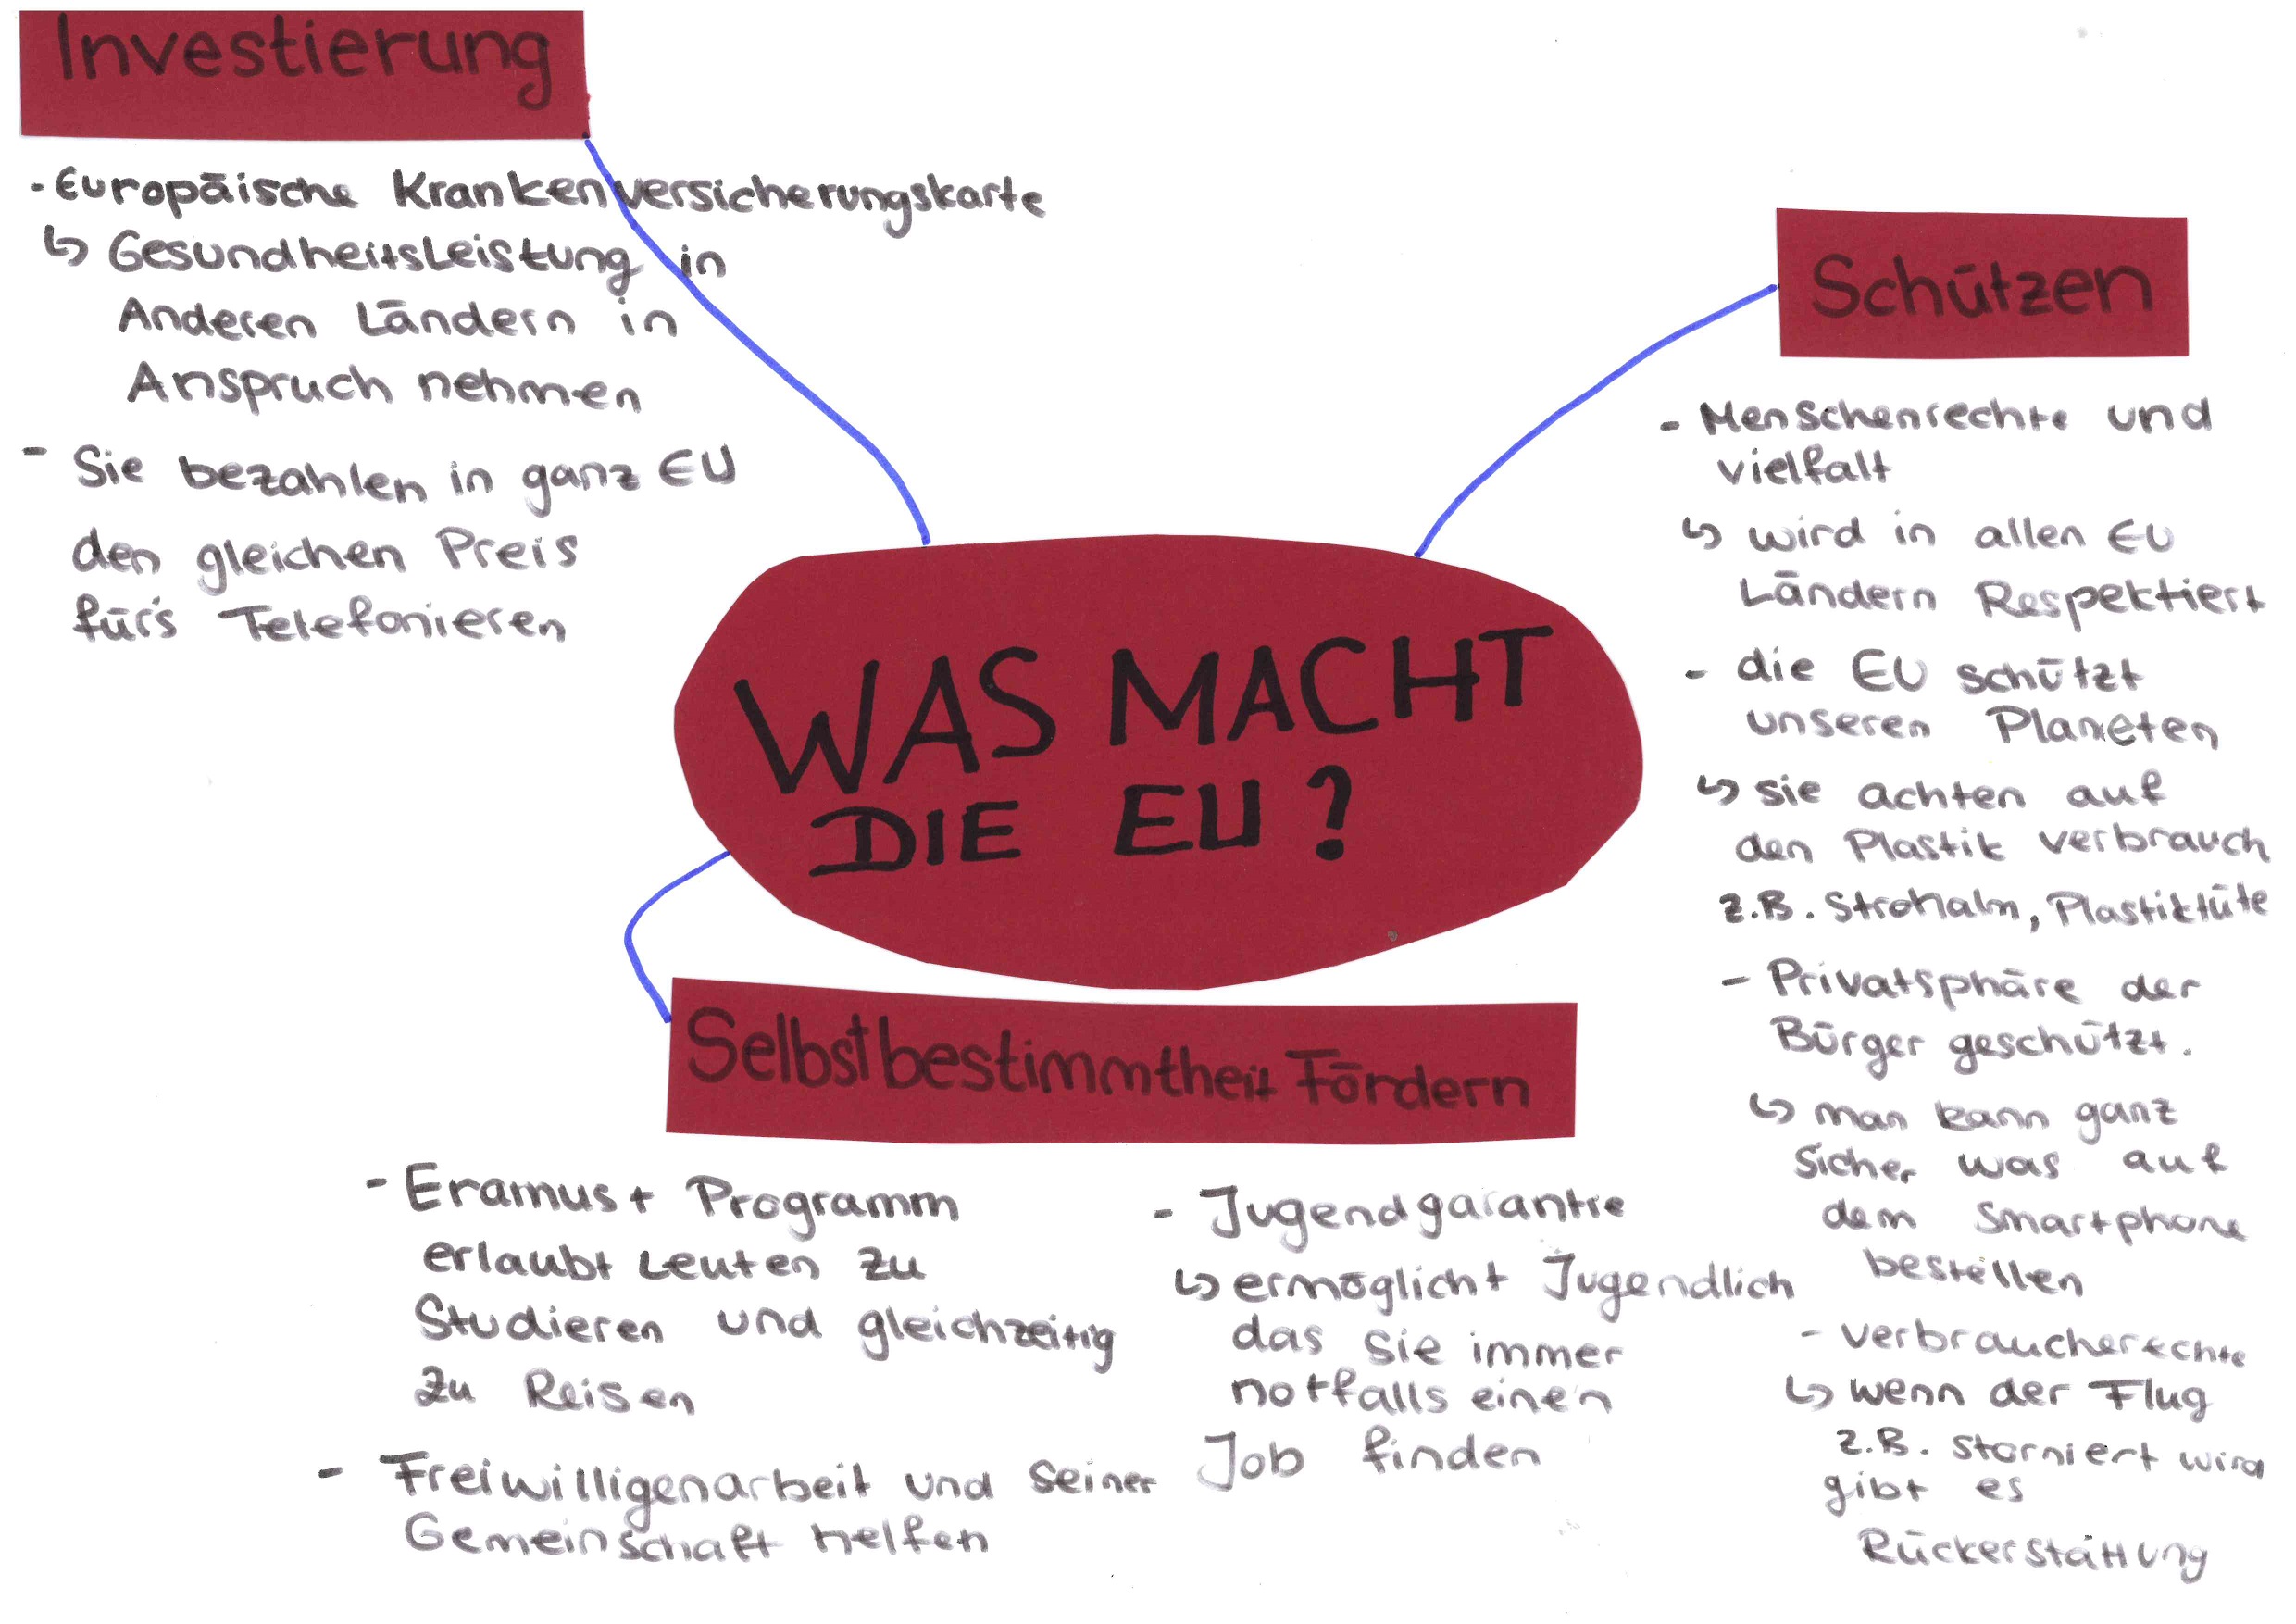 Investierung
- Europäische Krankenversicherungskarte
↳ Gesundheitsleistung in
Anderen Ländern in
Anspruch nehmen
- Sie bezahlen in ganz EU
den gleichen Preis
fürs Telefonieren
WAS MACHT
DIE EU?
Schützen
- Menschenrechte und
vielfalt
↳ wird in allen EU
Ländern Respektiert
- die EU schützt
unseren Planeten
↳ sie achten auf
den Plastik verbrauch
z.B. Strohalm, Plastiktüte
- Privatsphäre der
Bürger geschützt.
↳ man kann ganz
Sicher was auf
dem Smartphone
bestellen
- verbraucherechte
↳ wenn der Flug
z.B. storniert wird
gibt es
Rückerstattung
Selbstbestimmtheit Fördern
- Eramus+ Programm
erlaubt Leuten zu
Studieren und gleichzeitig
zu Reisen
- Freiwilligenarbeit und seiner
Gemeinschaft helfen
- Jugendgarantie
↳ ermöglicht Jugendlich
das sie immer
notfalls einen
Job finden